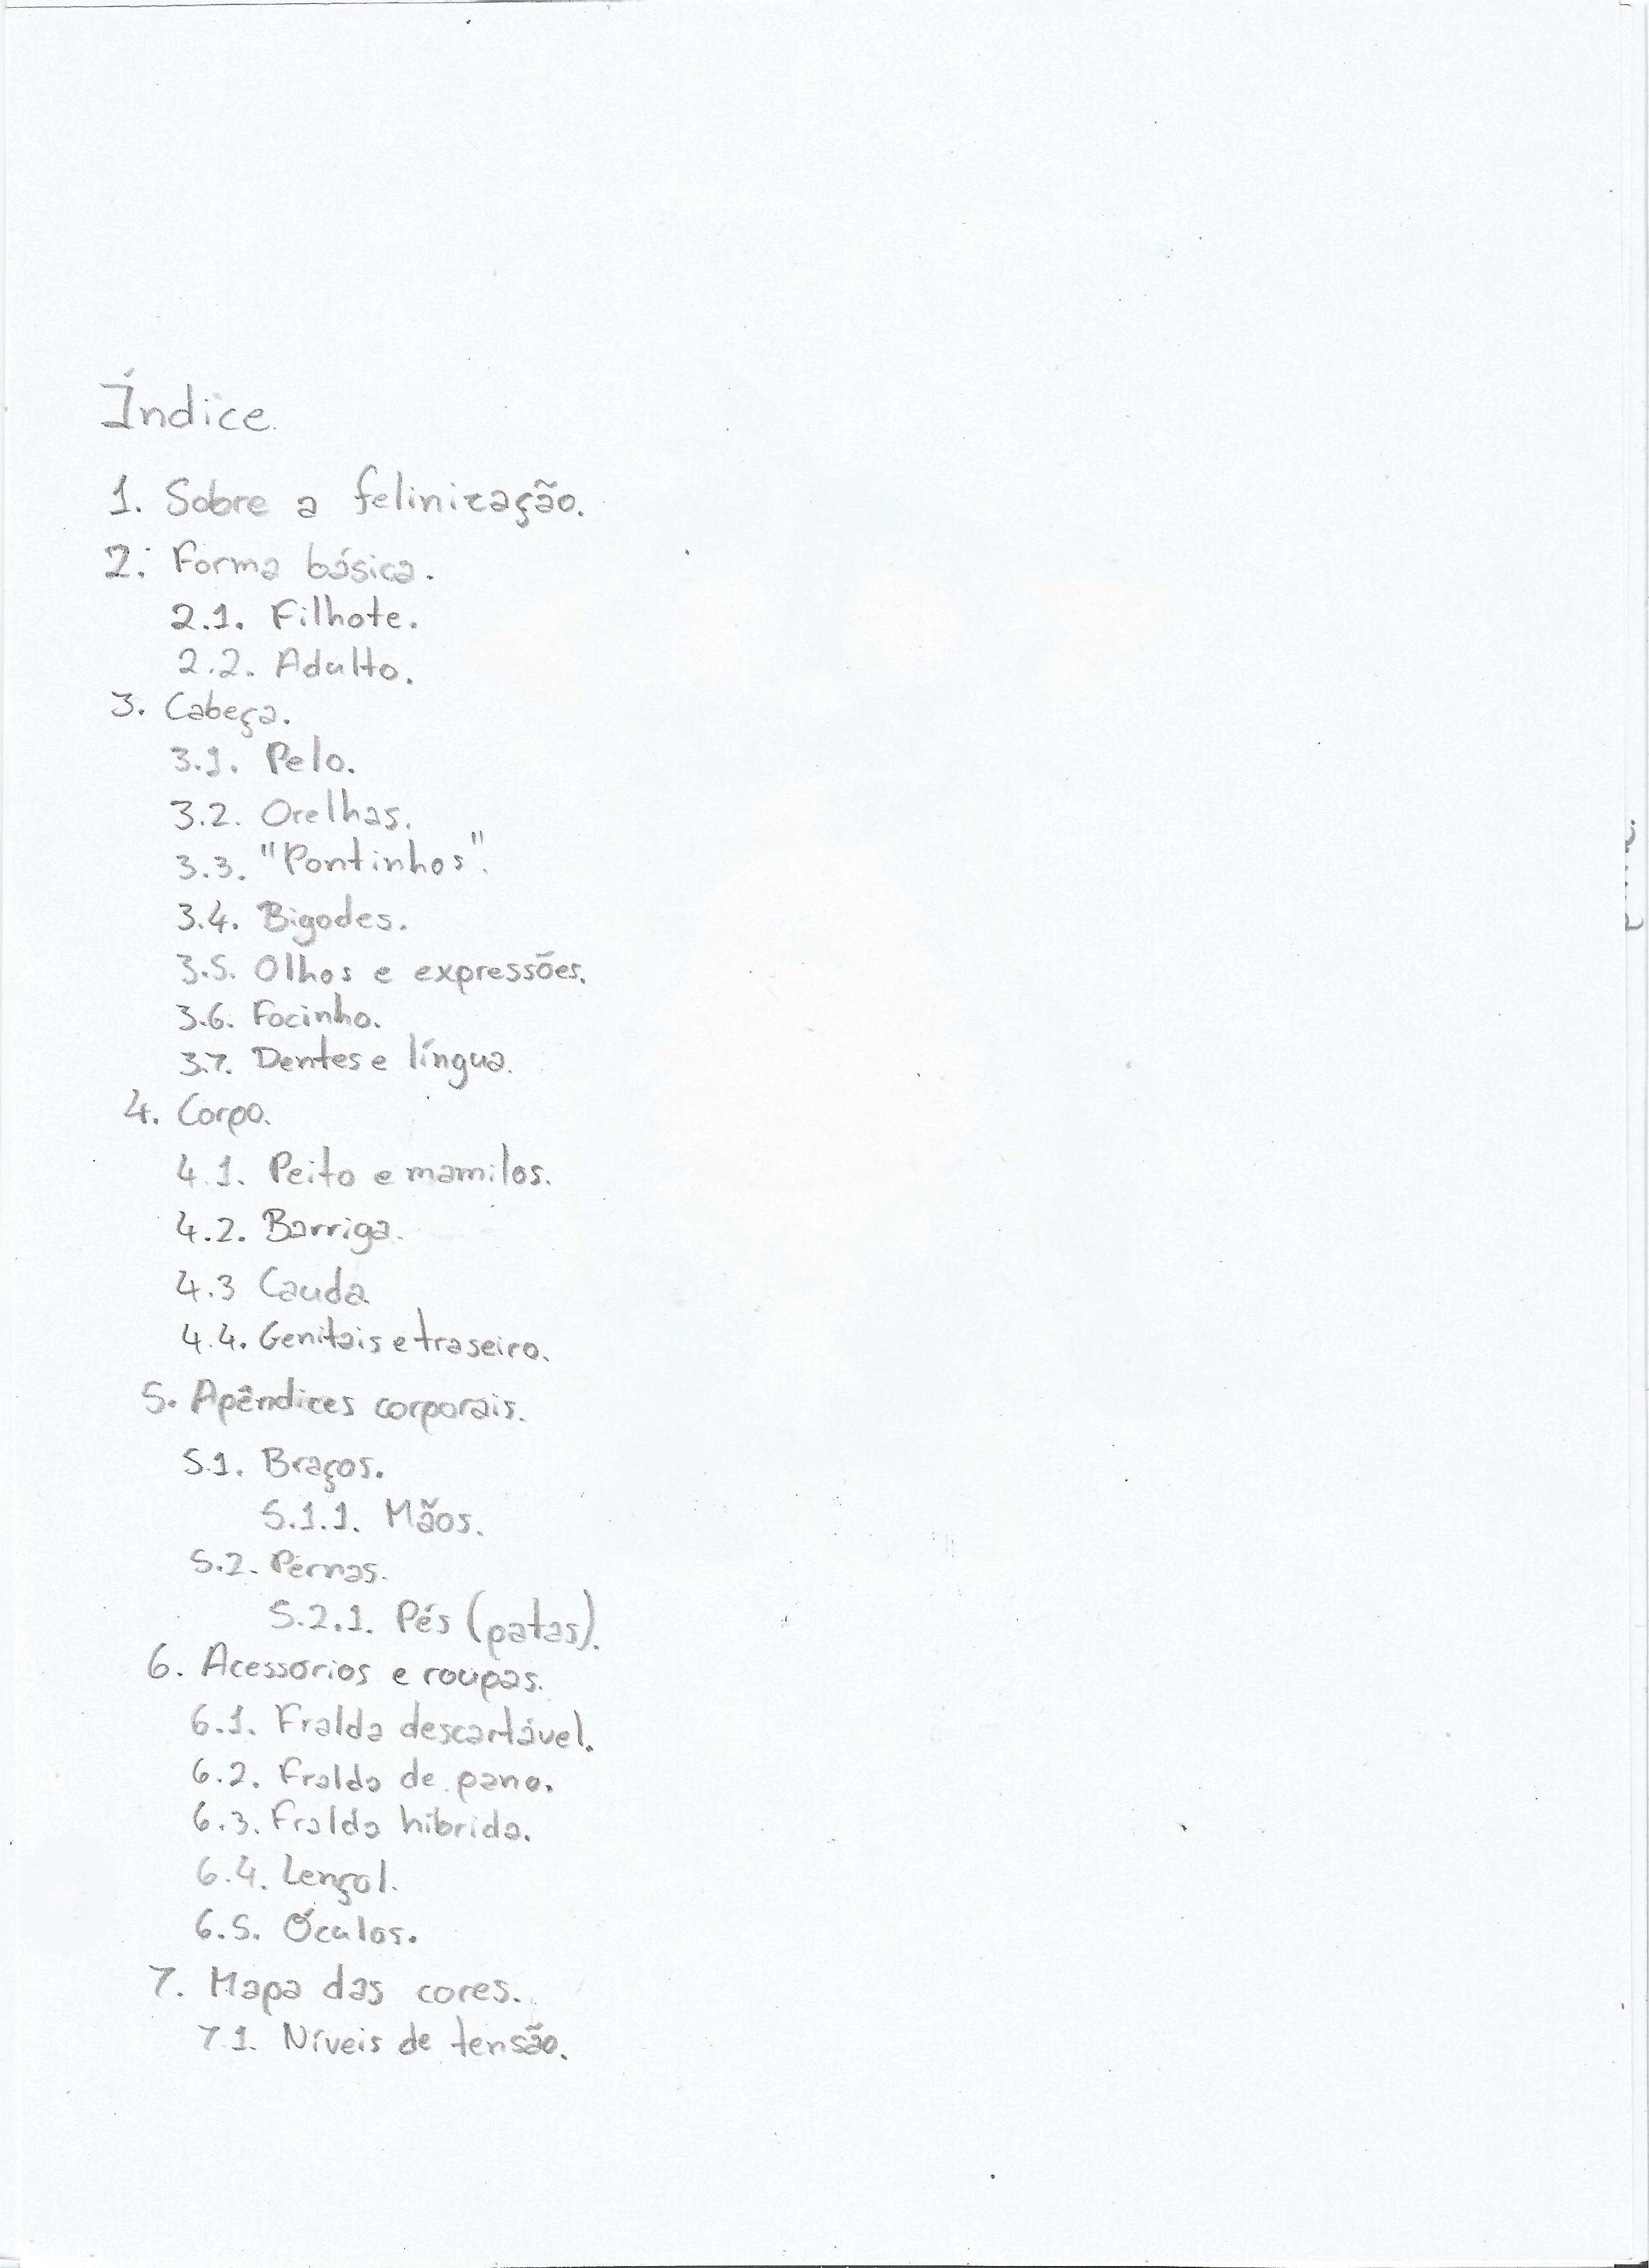 Índice.
1. Sobre a felinização.
2. Forma básica.
2.1. Filhote.
2.2. Adulto.
3. Cabeça.
3.1. Pelo.
3.2. Orelhas.
3.3. "Pontinhos".
3.4. Bigodes.
3.5. Olhos e expressões.
3.6. Focinho.
3.7. Dentes e língua.
4. Corpo.
4.1. Peito e mamilos.
4.2. Barriga.
4.3 Cauda
4.4. Genitais e traseiro.
5. Apêndices corporais.
5.1. Braços.
5.1.1. Mãos.
5.2. Pernas.
5.2.1. Pés (patas).
6. Acessórios e roupas.
6.1. Fralda descartável.
6.2. Fralda de pano.
6.3. Fralda híbrida.
6.4. Lençol.
6.5. Óculos.
7. Mapa das cores.
7.1. Níveis de tensão.